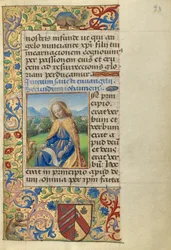 nostris infunde ut qui an
gelo nunciante xpi filii tui
incarnationem cognouim
per passionem eius et cru
cem ad resurrectionis glo
riam perducamur
Initium sancti euangelii
secundum iohannem
In prin
cipio
erat ver
bum et ver
bum erat
apud deū
et deus
erat ver
bum Hoc
erat in principio apud de
um omnia per ipm facta